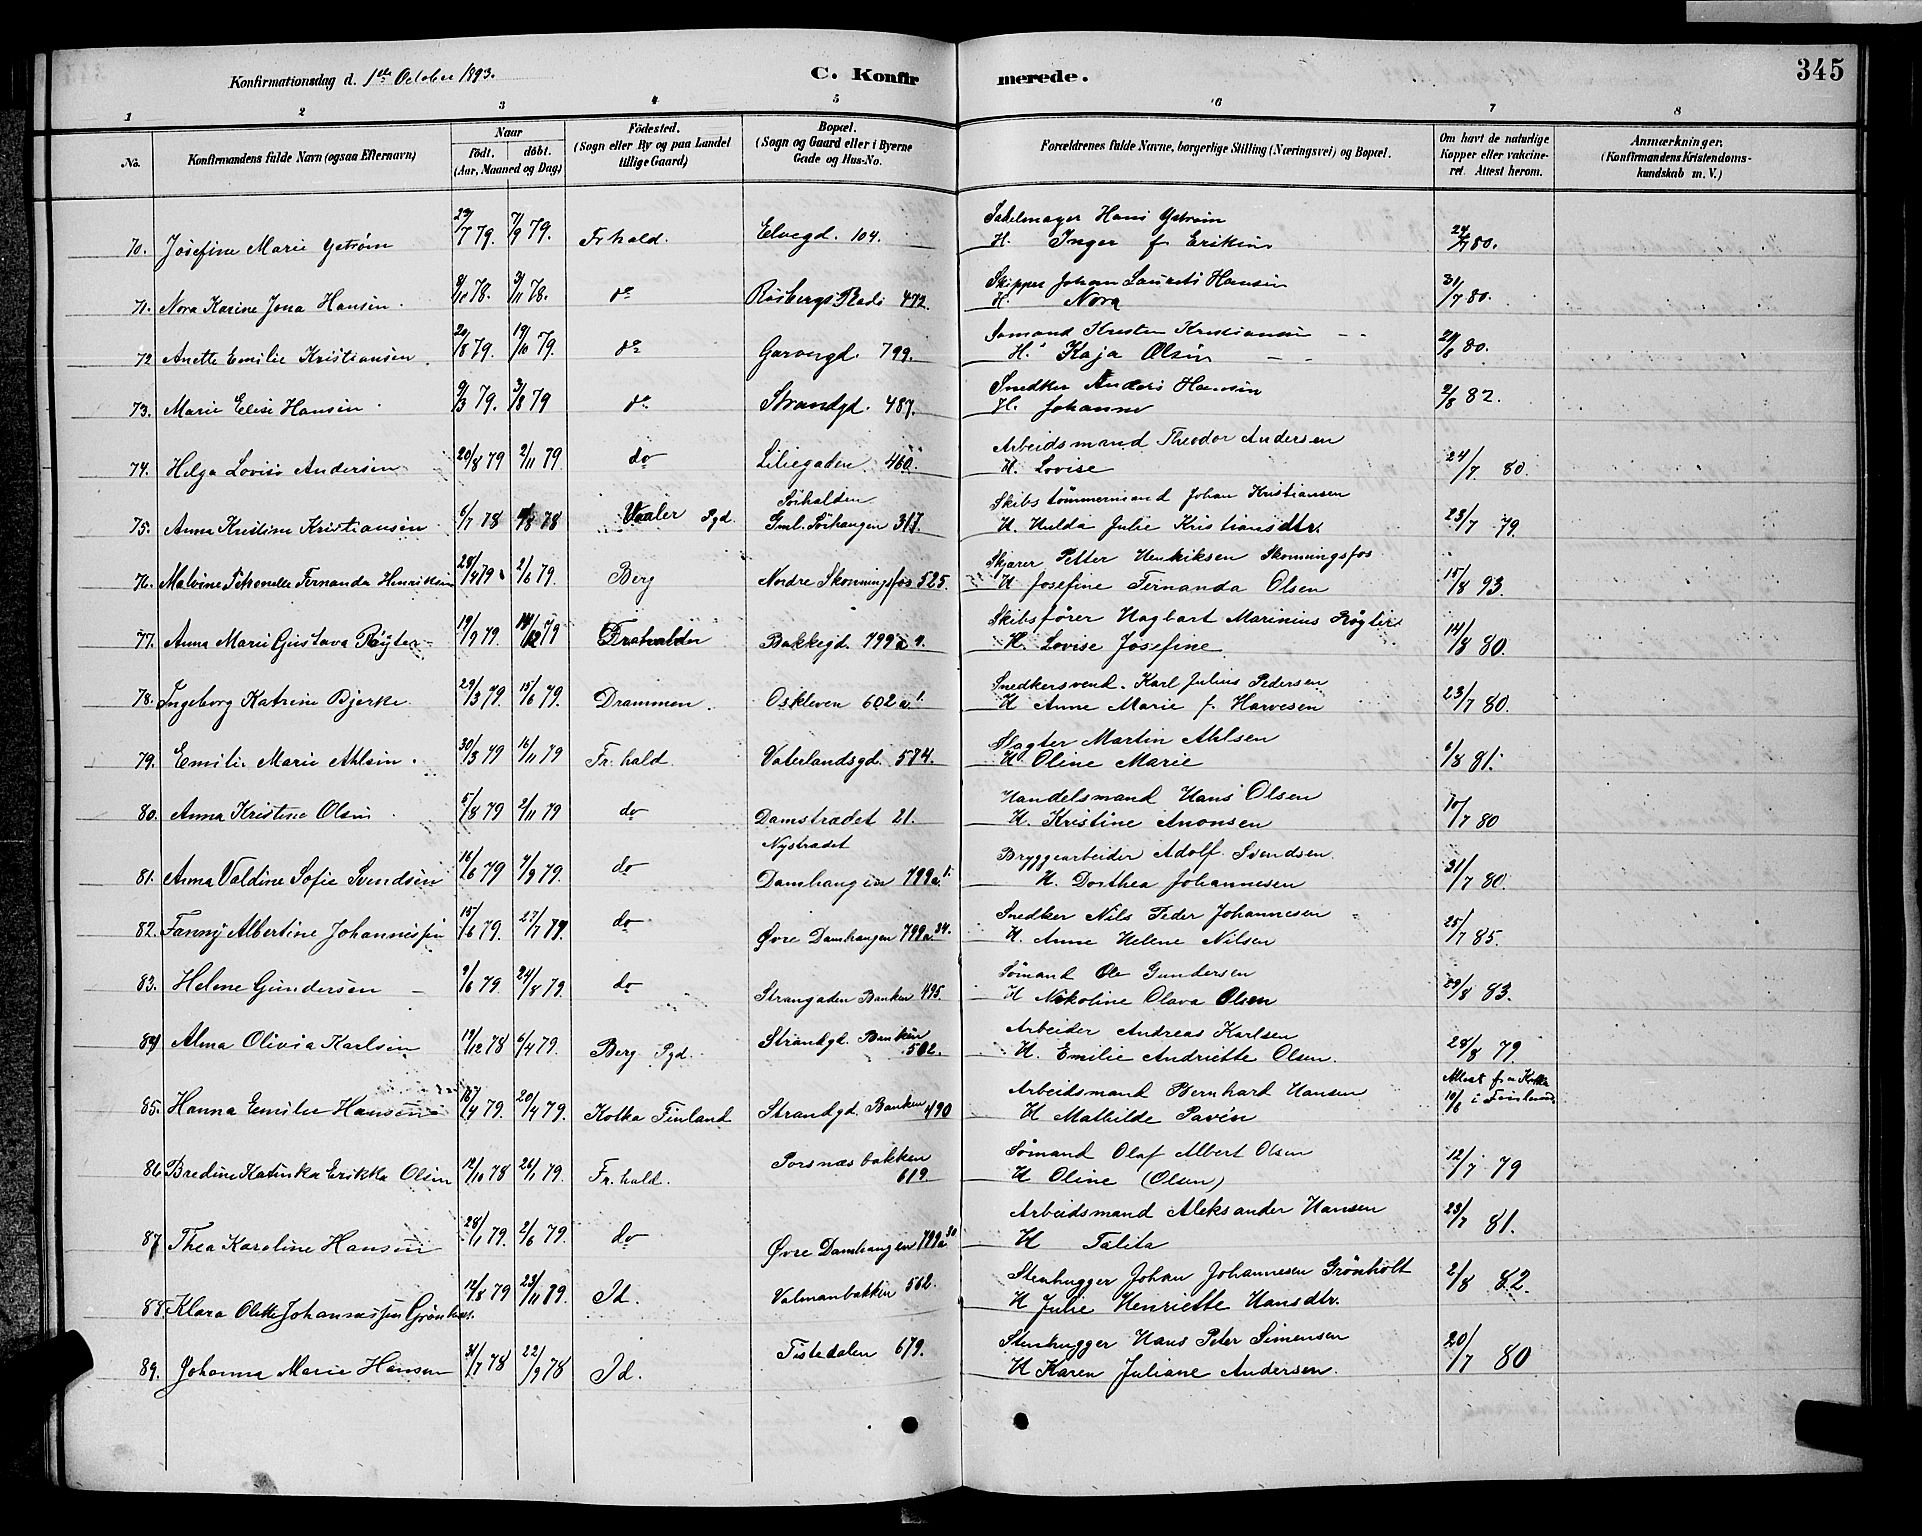 Konfirmationsdag d. 1ste October 1893.
C. Konfirmerede.
345
1 2 3 4 5 6 7 8
No. Konfirmandens fulde Navn (ogsaa Efternavn) Naar født. døbt. (Aar, Maaned og Dag) Fødested. (Sogn eller By og paa Landet tillige Gaard) Bopæl. (Sogn og Gaard eller i Byerne Gade og Hus-No. Forældrenes fulde Navne, borgerlige Stilling (Næringsvei) og Bopæl. Om havt de naturlige Kopper eller vakcineret. Attest herom. Anmærkninger. (Konfirmandens Kristendomskundskab m. V.)
70. Josefine Marie Ystrøm 7 79. 7/9 79. Fr.hald. Elvegd. 104. Hans Ystrøm
H. Inger f. 80.
71. Nora Karine Jona Hansen 78. 3/11 78. do 472. Skipper Johan Laurits Hansen 31/7 80.
H. Nora
72 Anette Emilie Kristiansen 20/8 79. 19/10 79. do Garvergd. 799. Sømand Kristen Kristiansen 80.
H. Kaja Olsen
73. Marie Elise Hansen 9/3 79. 3/8 79 do Strandgd. 487. Snedker Anders Hansen 2/8 82.
H. Johanne
74. Helga Lovise Andersen 20/8 79 2/11 79. do Liliegaden 460. Arbeidsmand Theodor Andersen 24/7 80.
H. Lovise
75. Anna Kristine Kristiansen 6/7 78 78 Vaaler Pgd. Sørhalden Gml. Sørhaugen 317 Skibstømmermand Johan Kristiansen 23/7 79.
H. Hulda Julie Kristiansdtr.
76. Malvine Fernanda Henriksen 79 2/6 79. Berg Nordre Skonningsfos 525. Skjærer Petter Henriksen Skonningsfos 15/8 93.
H Josefine Fernanda Olsen
77. Anna Marie Gustava Røgter 19/9 79. 14/12 79 Frhalden Bakkegd. 799a Skibsfører Hagbart Marinius Røgter. 14/8 80.
H. Lovise Josefine
78. Ingeborg Katrine Bjerke 29/3 79. 15/6 79. Drammen. Oskleven 602a 1. Snedkersvend. Karl Julius Pedersen 23/7 80.
H Anne Marie f. Harvesen
79. Emilie Marie Ahlsen. 30/3 79 16/11 79 Fr.hald. Vaterlandsgd. 574. Slagter Martin Ahlsen 6/8 91.
H Oline Marie
80. Anna Kristine Olsen 5/8 79 2/11 79 do Damstrædet 21. Handelsmand Hans Olsen 10/7 80
H. Kristine Anonsen
81. Anna Valdine Sofie Svendsen 16/6 79 7/9 79. do Nystrædet Damhaugen 799a 1. Bryggearbeider Adolf Svendsen. 31/7 80.
H. Dorthea Johannesen
82. Fanny Albertine Johannessen 15/6 79. 27/7 79. do Øvre Damhaugen 799a 34. Snedker Nils Peder Johannesen 25/7 85.
H. Anne Helene Nilsen
83. Helene Gundersen 9/6 79. 24/8 79. do Strangaden Banken 495. Sømand Ole Gundersen 29/8 83.
H Nikoline Olava Olsen
84 Alma Olivia Karlsen 19/12 78 6/4 79. Berg Pgd. Strandgd. Banken 502. Arbeider Andreas Karlsen 28/8 79
H. Emilie Andriette Olsen.
85. Hanna Emilie Hansen 16/4 79. 20/4 79. Kotka Finland Strandgd. Banken 490 Arbeidsmand Bernhard Hansen Attest fra Kotka 10/6 i Finland
H Mathilde Pavén
86 Bredine Katinka Erikka Olsen 12/10 78 26/1 79. Fr.hald. Porsnæsbakken 619. Sømand Olaf Albert Olsen 12/7 79
H Oline (Olsen)
87 Thea Karoline Hansen 28/1 79. 2/6 79. do Øvre Damhaugen 799a 30 Arbeidsmand Aleksander Hansen 23/7 81.
H Talita
88. Klara Olette Johannessen Grønholt. 12/8 79 23/11 79. Id. Valmanbakken 562. Stenhugger Johan Johannesen Grønholt 2/8 82.
H Julie Henriette Hansdtr.
89. Johanna Marie Hansen 31/7 78 22/9 78 Id. Tistedalen 679. Stenhugger Hans Peter Simensen 20/7 80
H Karen Juliane Andersen.